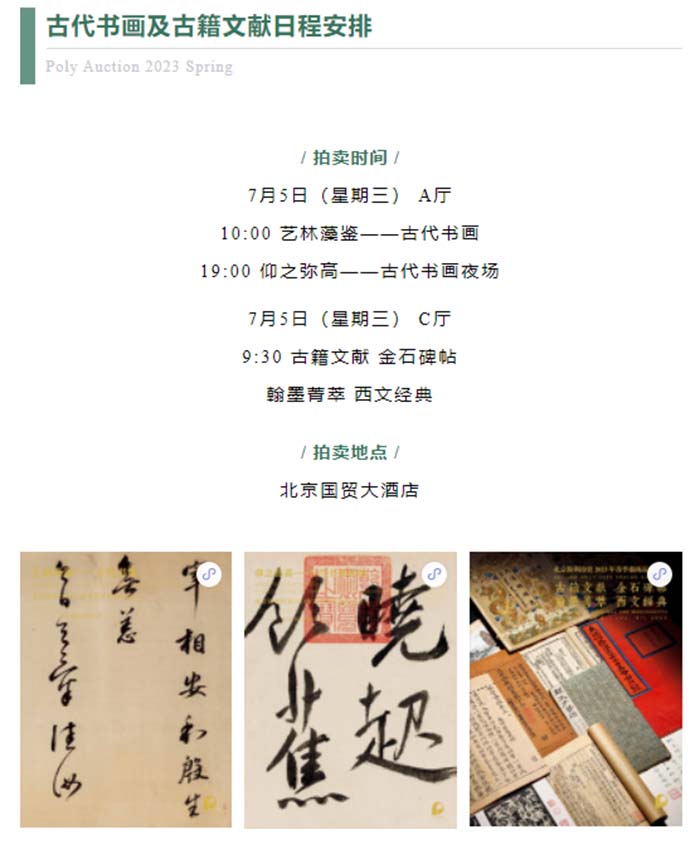 古代书画及古籍文献日程安排
Poly Auction 2023 Spring
/ 拍卖时间 /
7月5日（星期三） A厅
10:00 艺林藻鉴——古代书画
19:00 仰之弥高——古代书画夜场
7月5日（星期三） C厅
9:30 古籍文献 金石碑帖
翰墨菁萃 西文经典
/ 拍卖地点 /
北京国贸大酒店
宰相安和殷生
無恙
曉起
飲
蕉
古籍文献 金石碑帖
西文經典